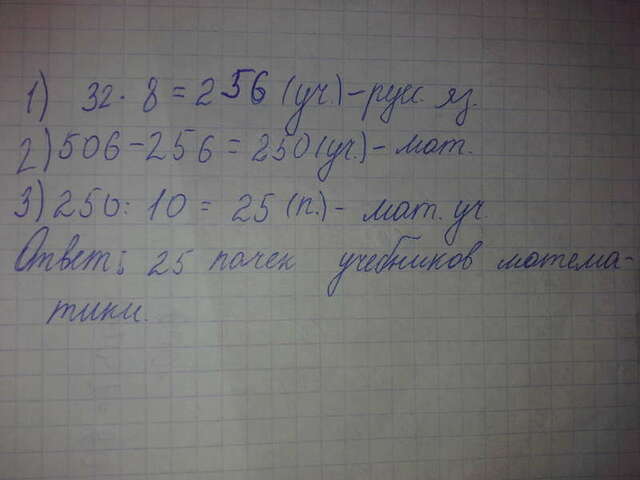 1) 32 · 8 = 256 (уч.) – рус. яз.
2) 506 – 256 = 250 (уч.) – мат.
3) 250 : 10 = 25 (п.) – мат. уч.
Ответ: 25 пачек учебников матема-
тики.